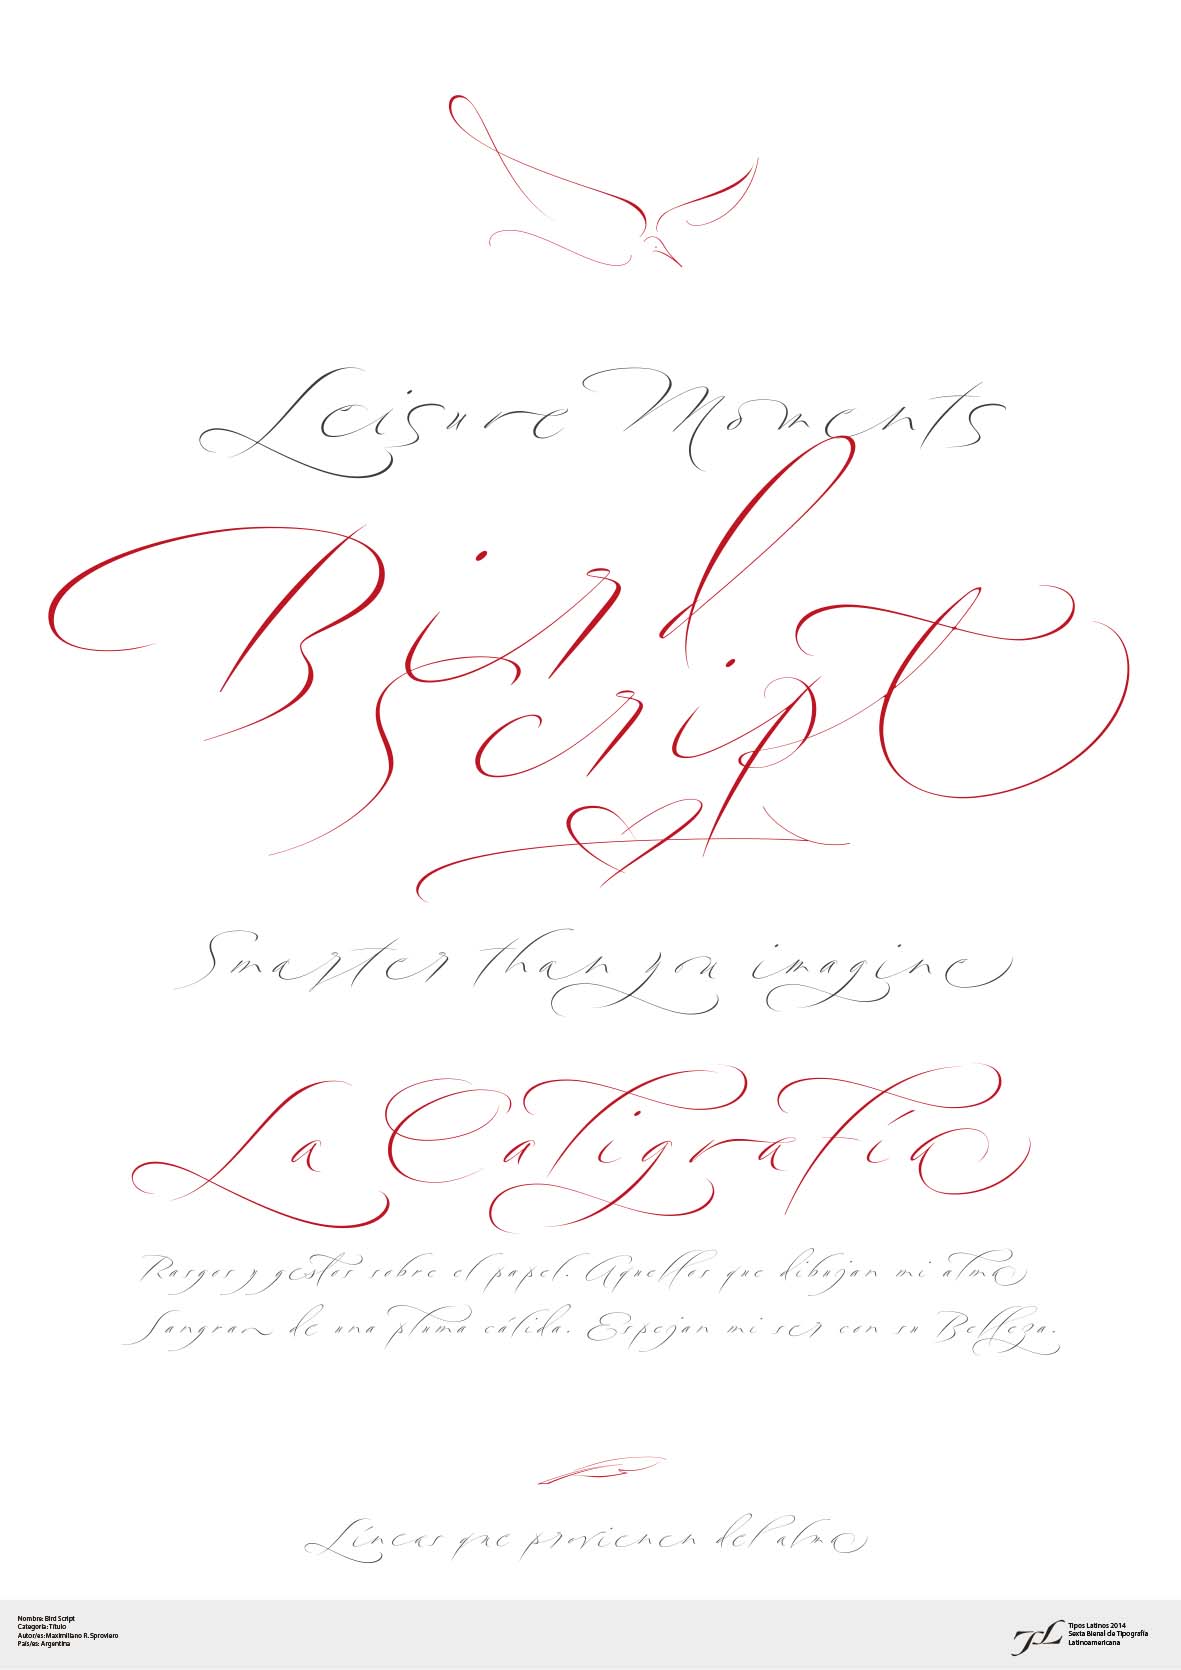 Leisure Moments
Bird
Script
Smarter than you imagine
La Caligrafía
Rasgos y gestos sobre el papel. Aquellos que dibujan mi alma
Sangran de una pluma cálida. Espejan mi ser con su Belleza.
Líneas que provienen del alma
Nombre: Bird Script
Categoría: Título
Autor/es: Maximiliano R. Sproviero
País/es: Argentina
TL
Tipos Latinos 2014
Sexta Bienal de Tipografía
Latinoamericana